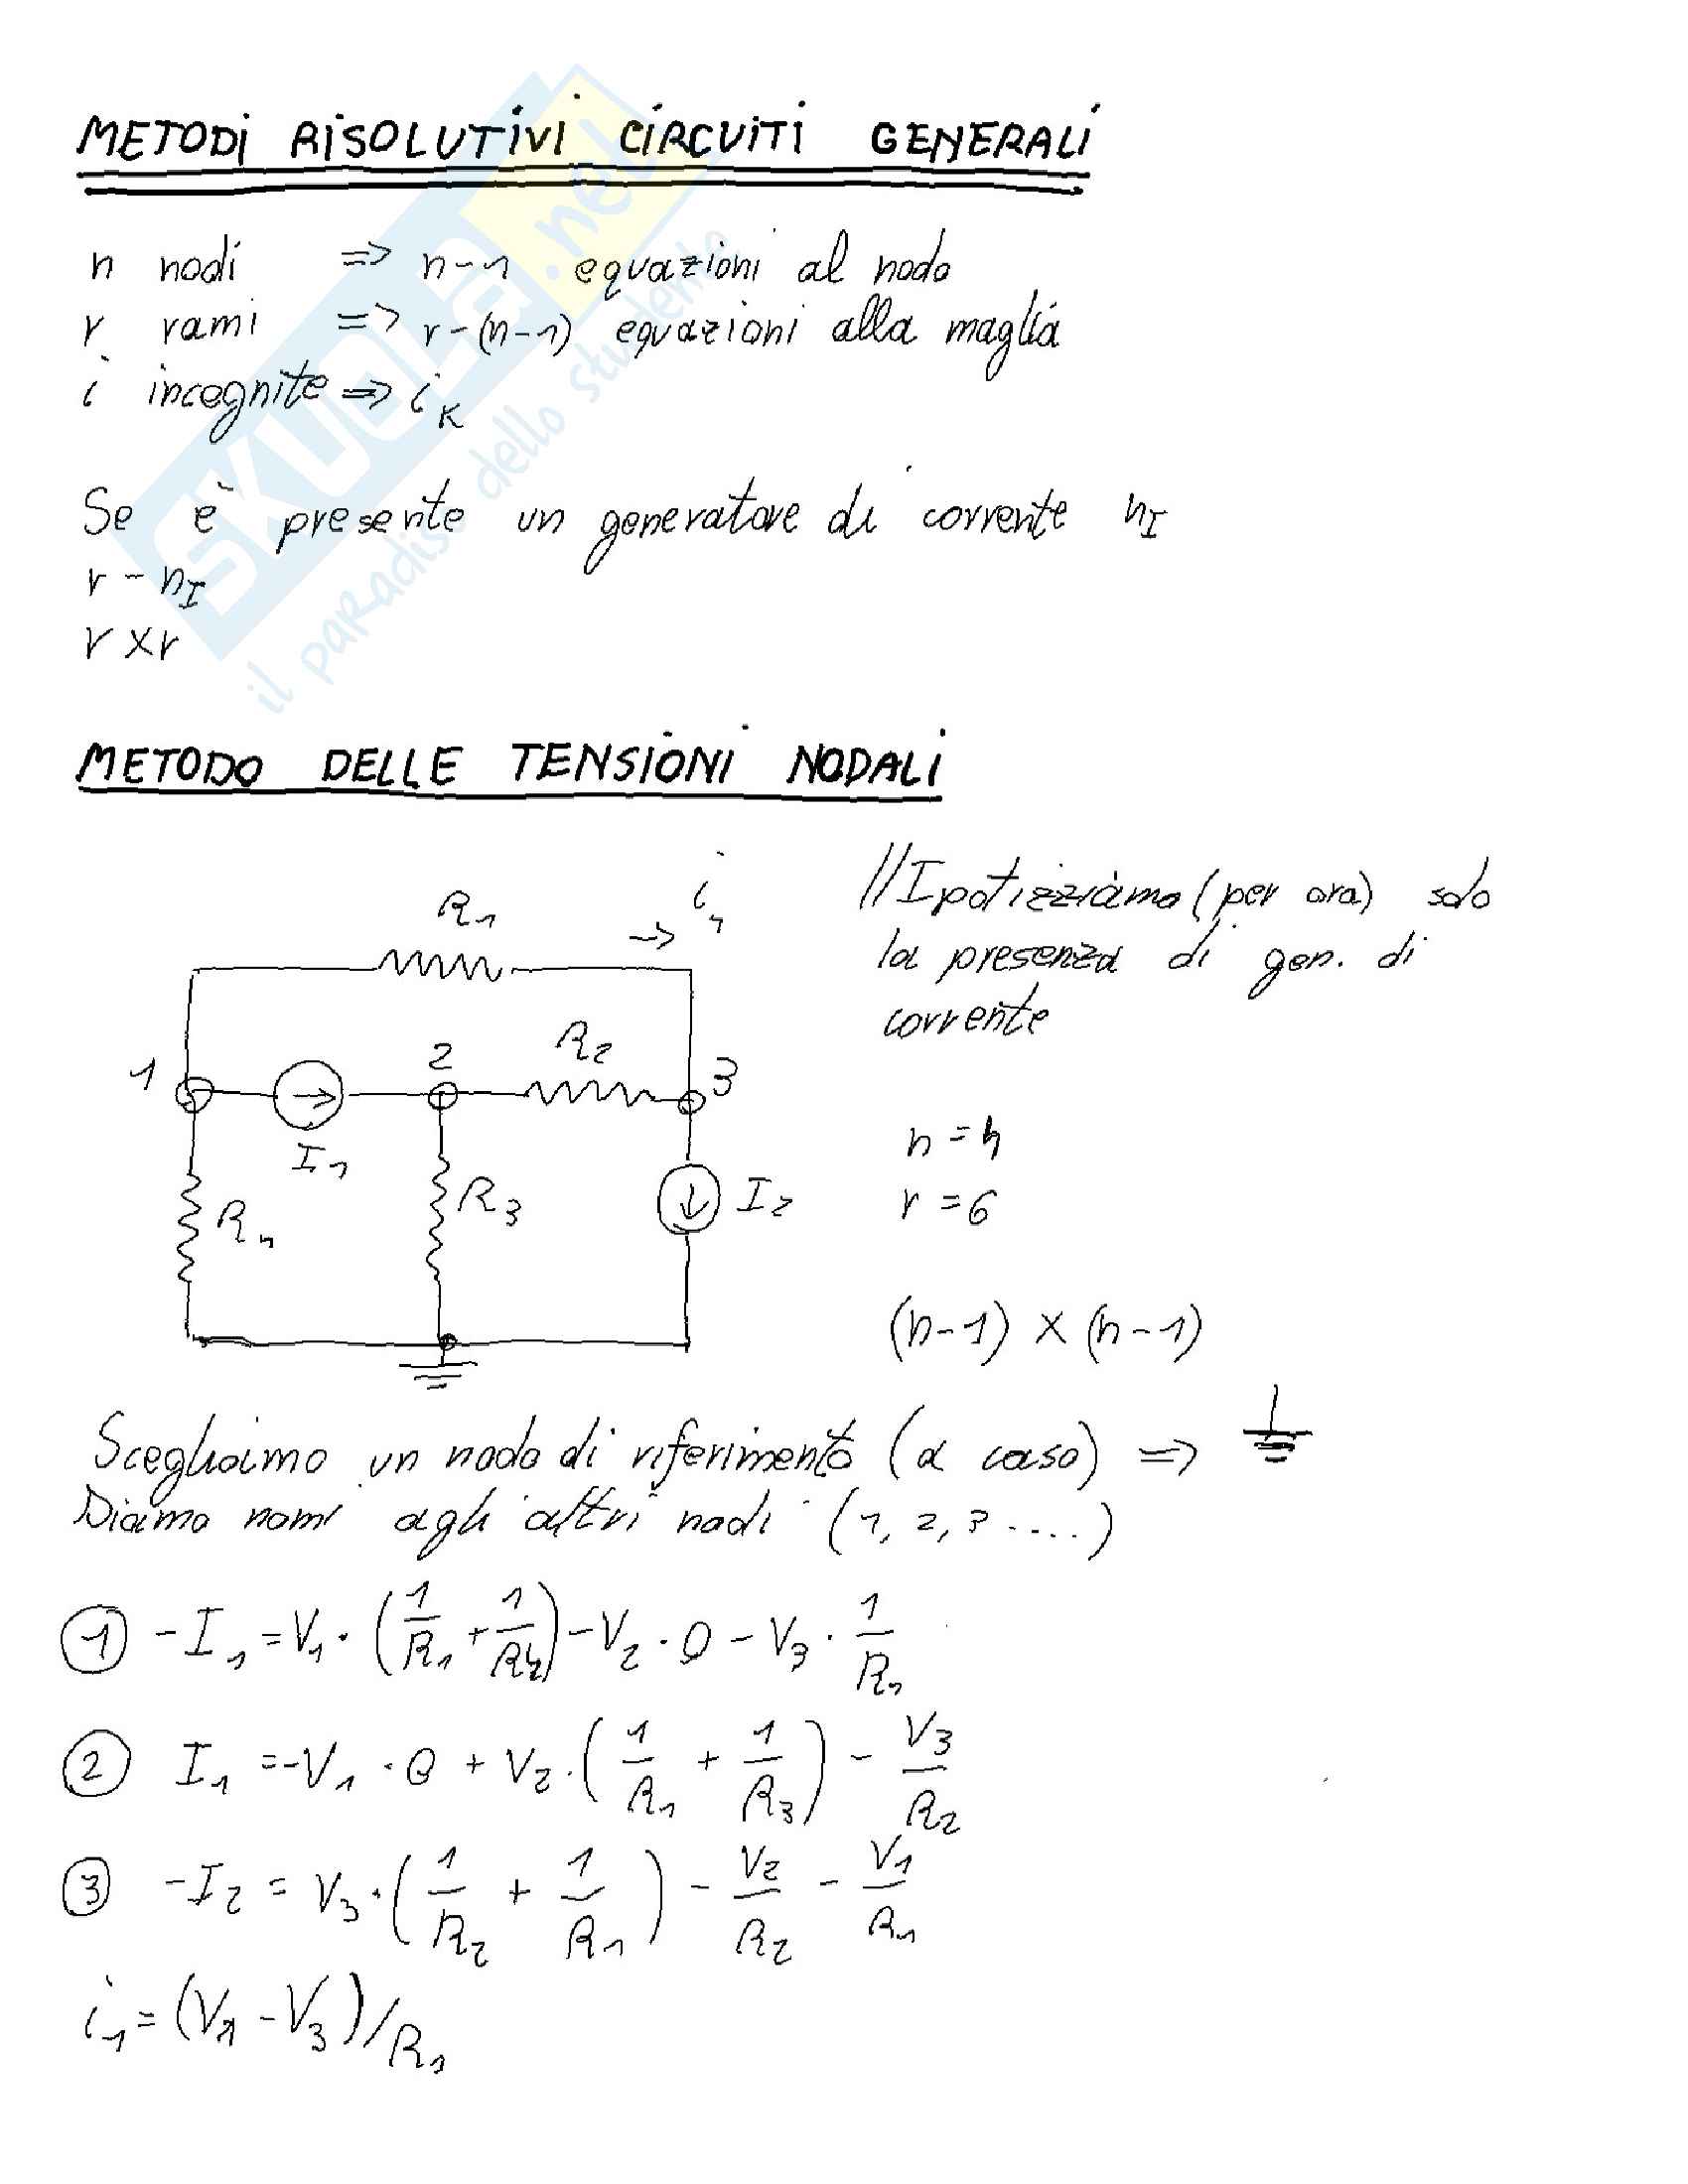 METODI RISOLUTIVI CIRCUITI GENERALI
n nodi => n-1 equazioni al nodo
r rami => r-(n-1) equazioni alla maglia
i incognite => iK
Se è presente un generatore di corrente nI
r - nI
r x r
SKUOLA.net
il paradiso dello studente
METODO DELLE TENSIONI NODALI
//Ipotizziamo (per ora) solo
la presenza di gen. di
corrente
R1 -> i1
1 I1 2 R2 3
R4 R3 I2
n = 4
r = 6
(n-1) x (n-1)
Sceglioimo un nodo di riferimento (a caso) =>
Diamo nomi agli altri nodi (1, 2, 3 ....)
① -I1 = V1 · (1/R1 + 1/R4) - V2 · 0 - V3 · 1/R1
② I1 = -V1 · 0 + V2 · (1/R1 + 1/R3) - V3/R2
③ -I2 = V3 · (1/R2 + 1/R1) - V2/R2 - V1/R1
i1 = (V1 - V3)/R1